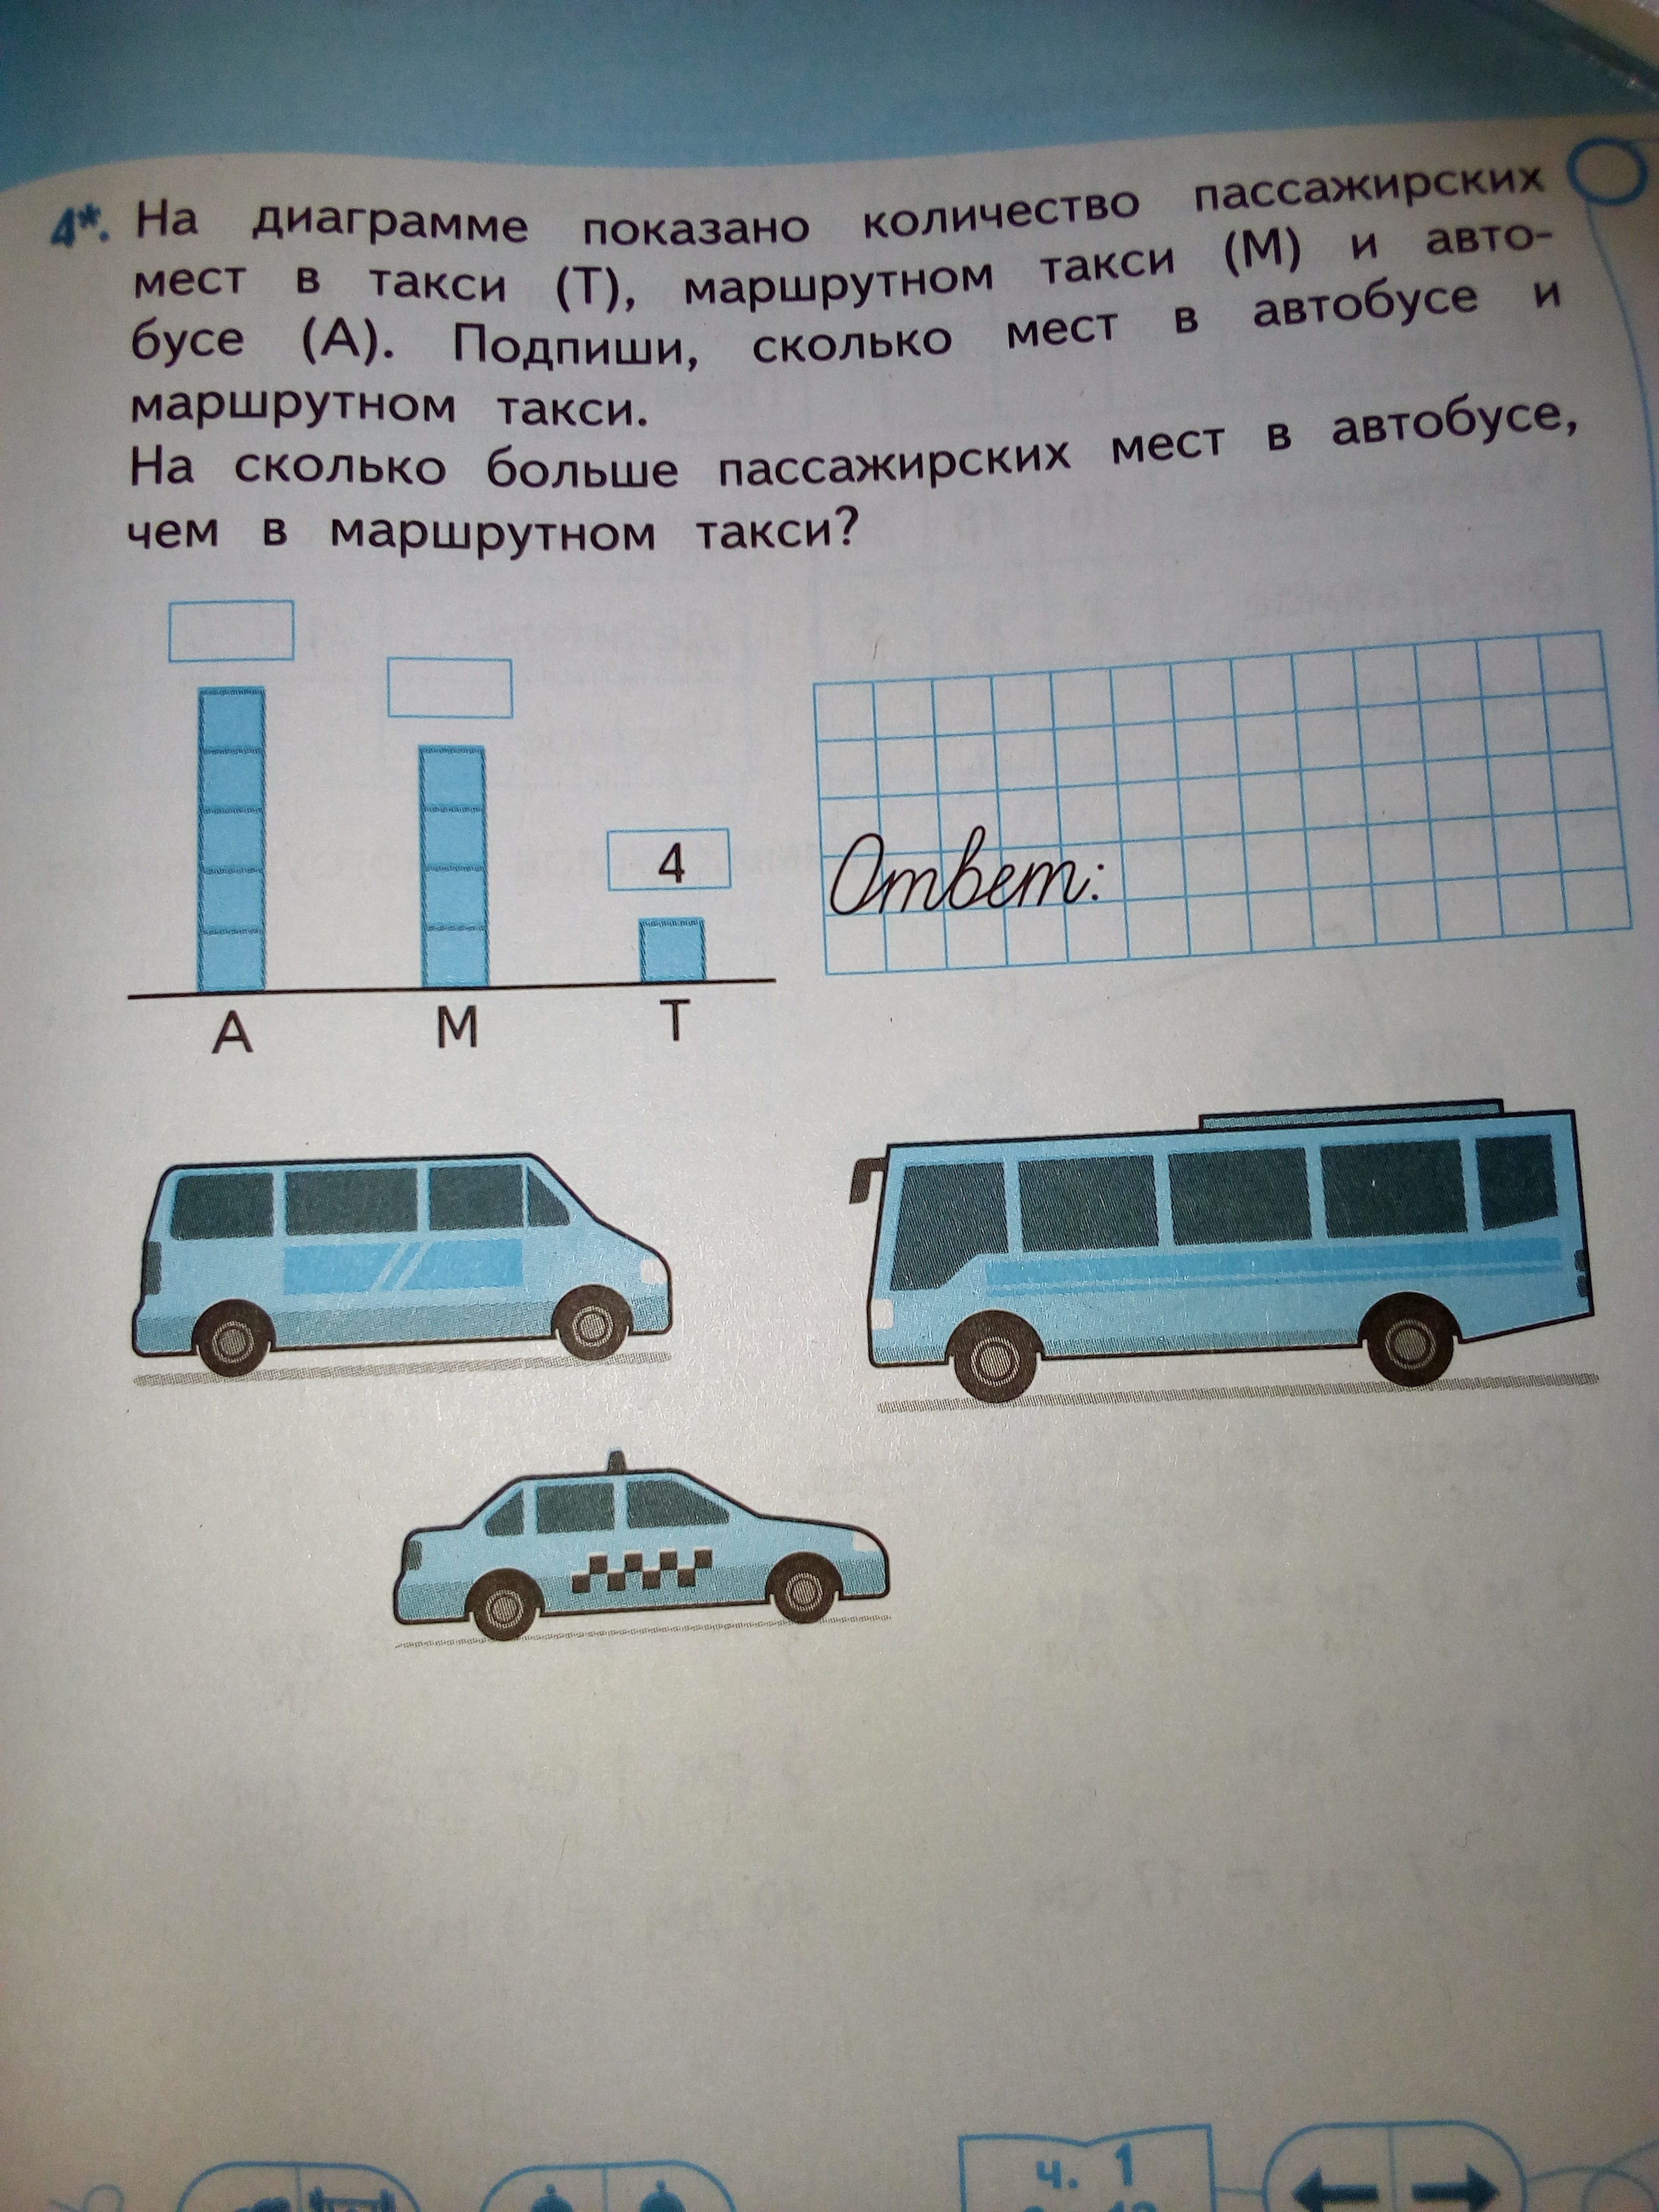 4*. На диаграмме показано количество пассажирских
мест в такси (Т), маршрутном такси (М) и авто-
бусе (А). Подпиши, сколько мест в автобусе и
маршрутном такси.
На сколько больше пассажирских мест в автобусе,
чем в маршрутном такси?
4
Ответ:
А М Т
ч. 1